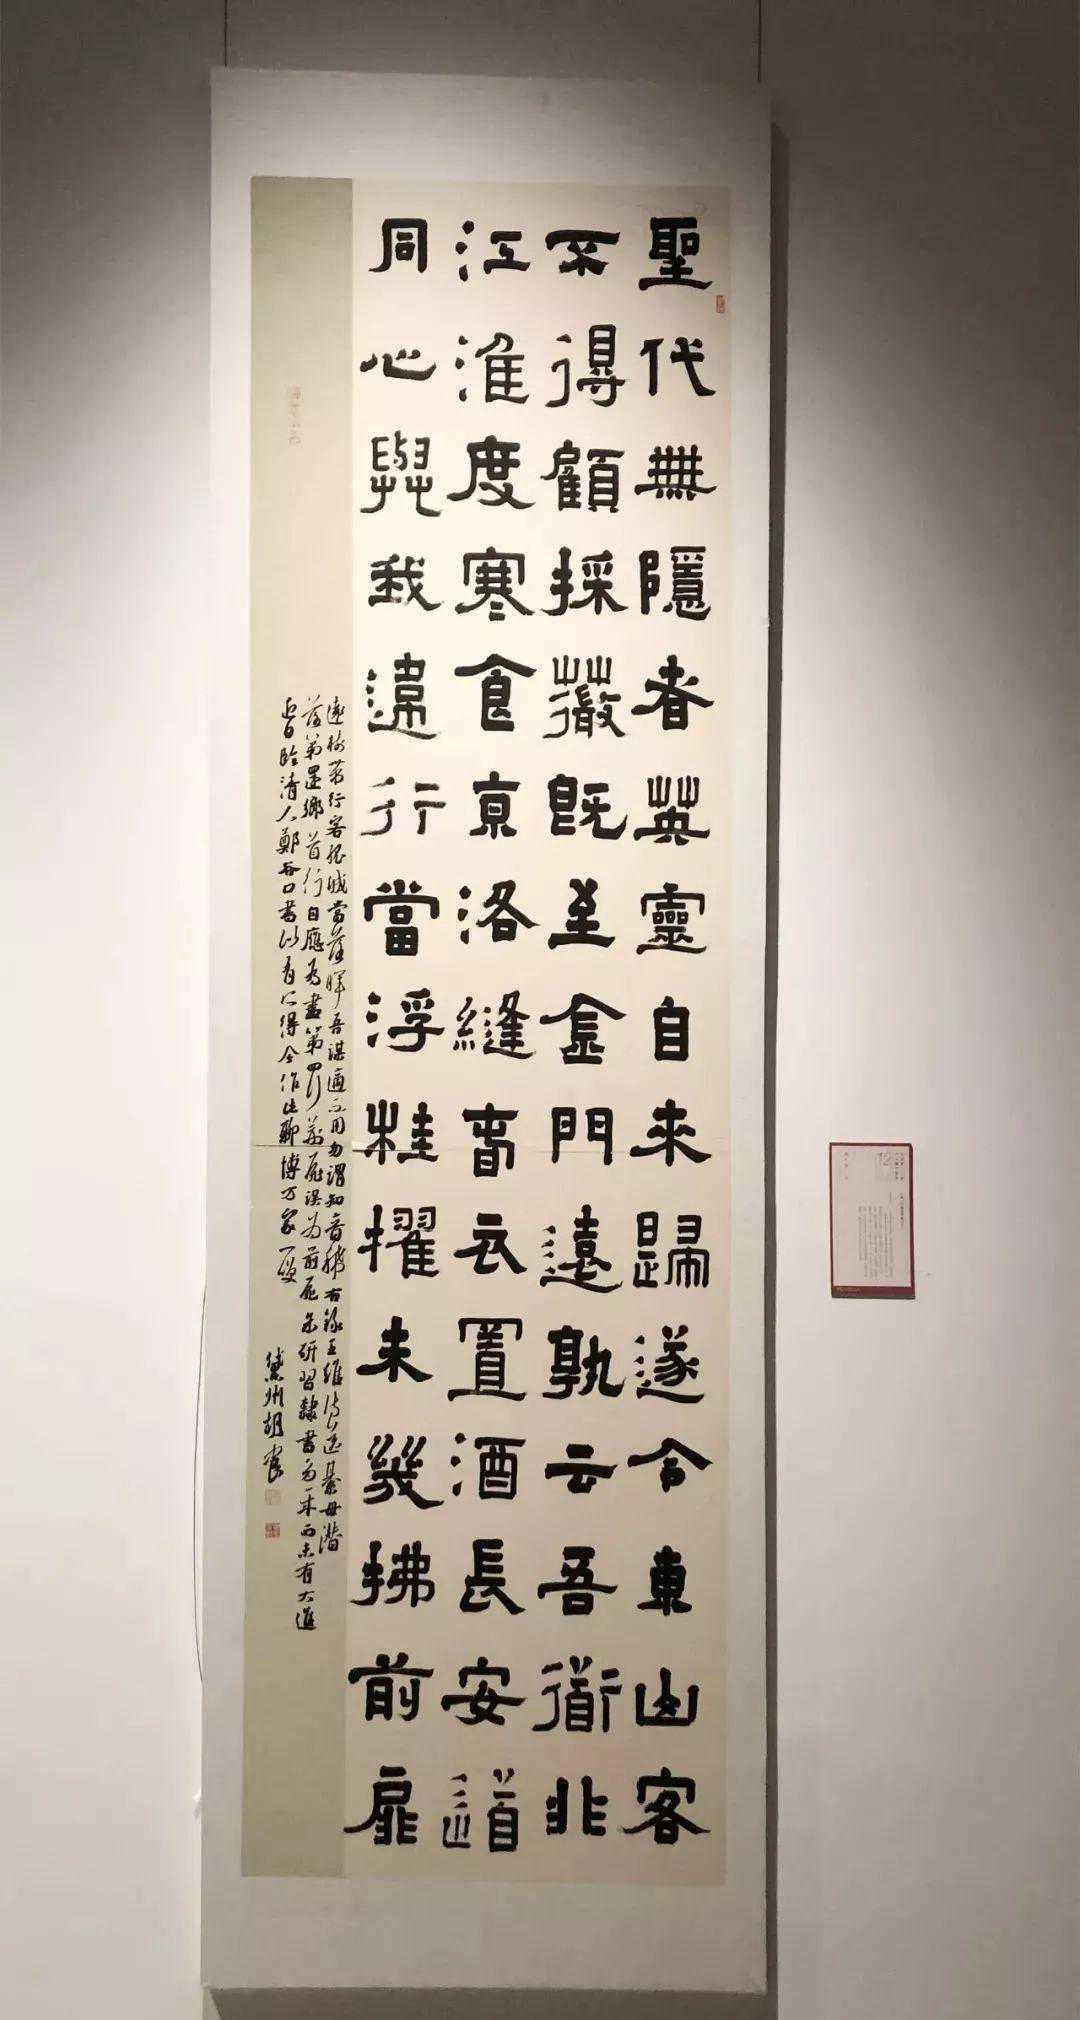 聖代無隱者英靈自來歸遂令東山客
不得顧採薇既至金門遠孰云吾衜非
江淮度寒食京洛縫春衣置酒長安道
同心與我違行當浮桂擢未幾拂前扉
遠樹帶行客孤城當落暉吾謀適不用勿謂知音稀右錄王維詩送綦毋潛
落第還鄉首行自應為盡第四行荊扉誤为前扉余研習隸書多年而未有大進
近日臨清人鄭谷口書似有心得今作此聊博方家一哂
州胡